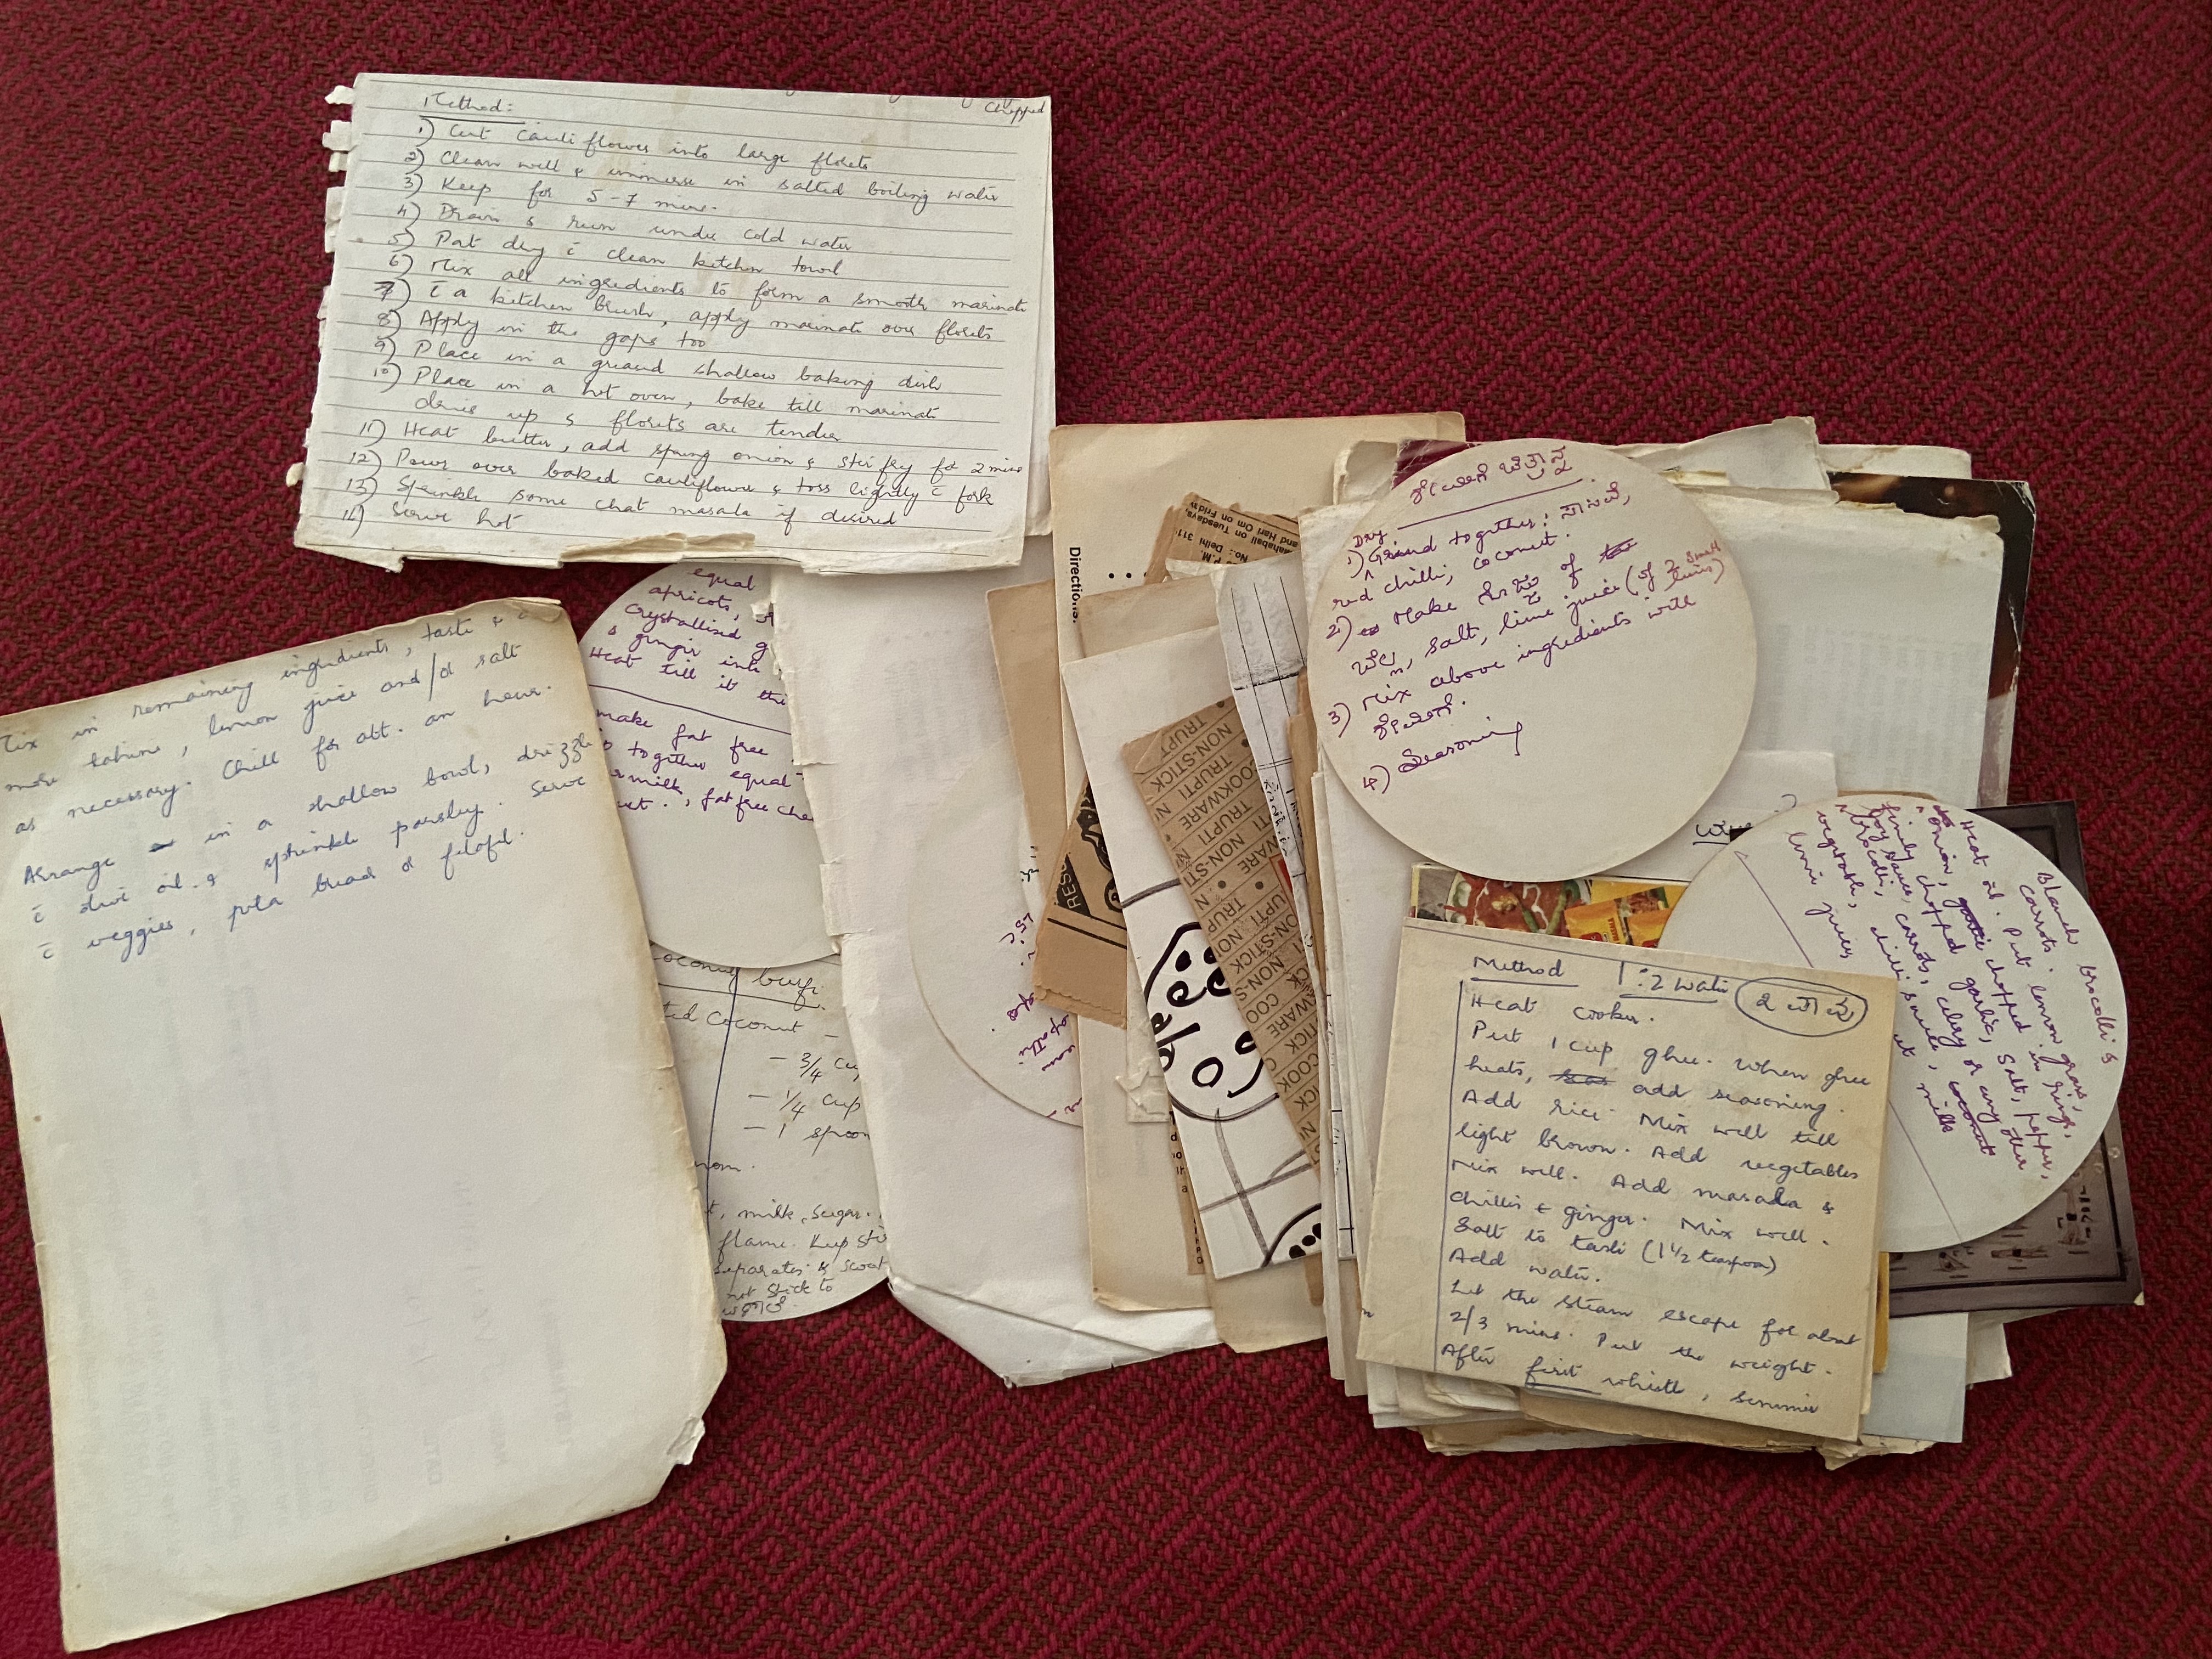 Chopped
Method:
1) Cut Cauliflower into large florets
2) Clean well & immerse in salted boiling water
3) Keep for 5-7 mins.
4) Drain & run under cold water
5) Pat dry c̄ clean kitchen towel
6) Mix all ingredients to form a smooth marinate
7) c̄ a kitchen brush, apply marinate over florets
8) Apply in the gaps too
9) Place in a greased shallow baking dish
10) Place in a hot oven, bake till marinate
dries up & florets are tender
11) Heat butter, add spring onion & stir fry for 2 mins
12) Pour over baked cauliflower & toss lightly c̄ fork
13) Sprinkle some chat masala if desired
14) Serve hot
Mix in remaining ingredients, taste &
more tahini, lemon juice and/or salt
as necessary. Chill for abt. an hour.
Arrange in a shallow bowl, drizzle
c̄ olive oil & sprinkle parsley. Serve
c̄ veggies, pita bread or felafel.
equal
apricots,
Crystallised g
& ginger into
Heat till it thi
make fat free
together equal
milk
, fat free che
oconut burfi
ted Coconut -
- 3/4 Cu
- 1/4 Cup
- 1 spoon
t, milk, sugar.
flame. Keep sti
separates &
not stick to
Directions.
ahaball on Tuesdays,
and Hari Om on Frida
P.M.
No.: Delhi 311
RES
NON-STICK
TRUPTI
COOKWARE
Dry
1) Grind together: ಸಾಸಿವೆ,
red chilli, coconut.
2) Make ಗೊಜ್ಜು of
ಬೆಲ್ಲ, salt, lime juice (of 2 small limes)
3) Mix above ingredients with
4) Seasoning
Blanch brocolli &
carrots.
Heat oil. Put lemon grass,
onion, chopped in rings,
finely chopped garlic, salt, pepper,
soy sauce, carrots, celery or any other
vegetable, chilli sauce, coconut milk
lime juice
Method 1:2 Water
Heat cooker.
Put 1 cup ghee. When ghee
heats, add seasoning.
Add rice. Mix well till
light brown. Add vegetables
Mix well. Add masala &
chillis & ginger. Mix well.
Salt to taste (1 1/2 teaspoon)
Add water.
Let the steam escape for about
2/3 mins. Put the weight.
After first whistle, simmer